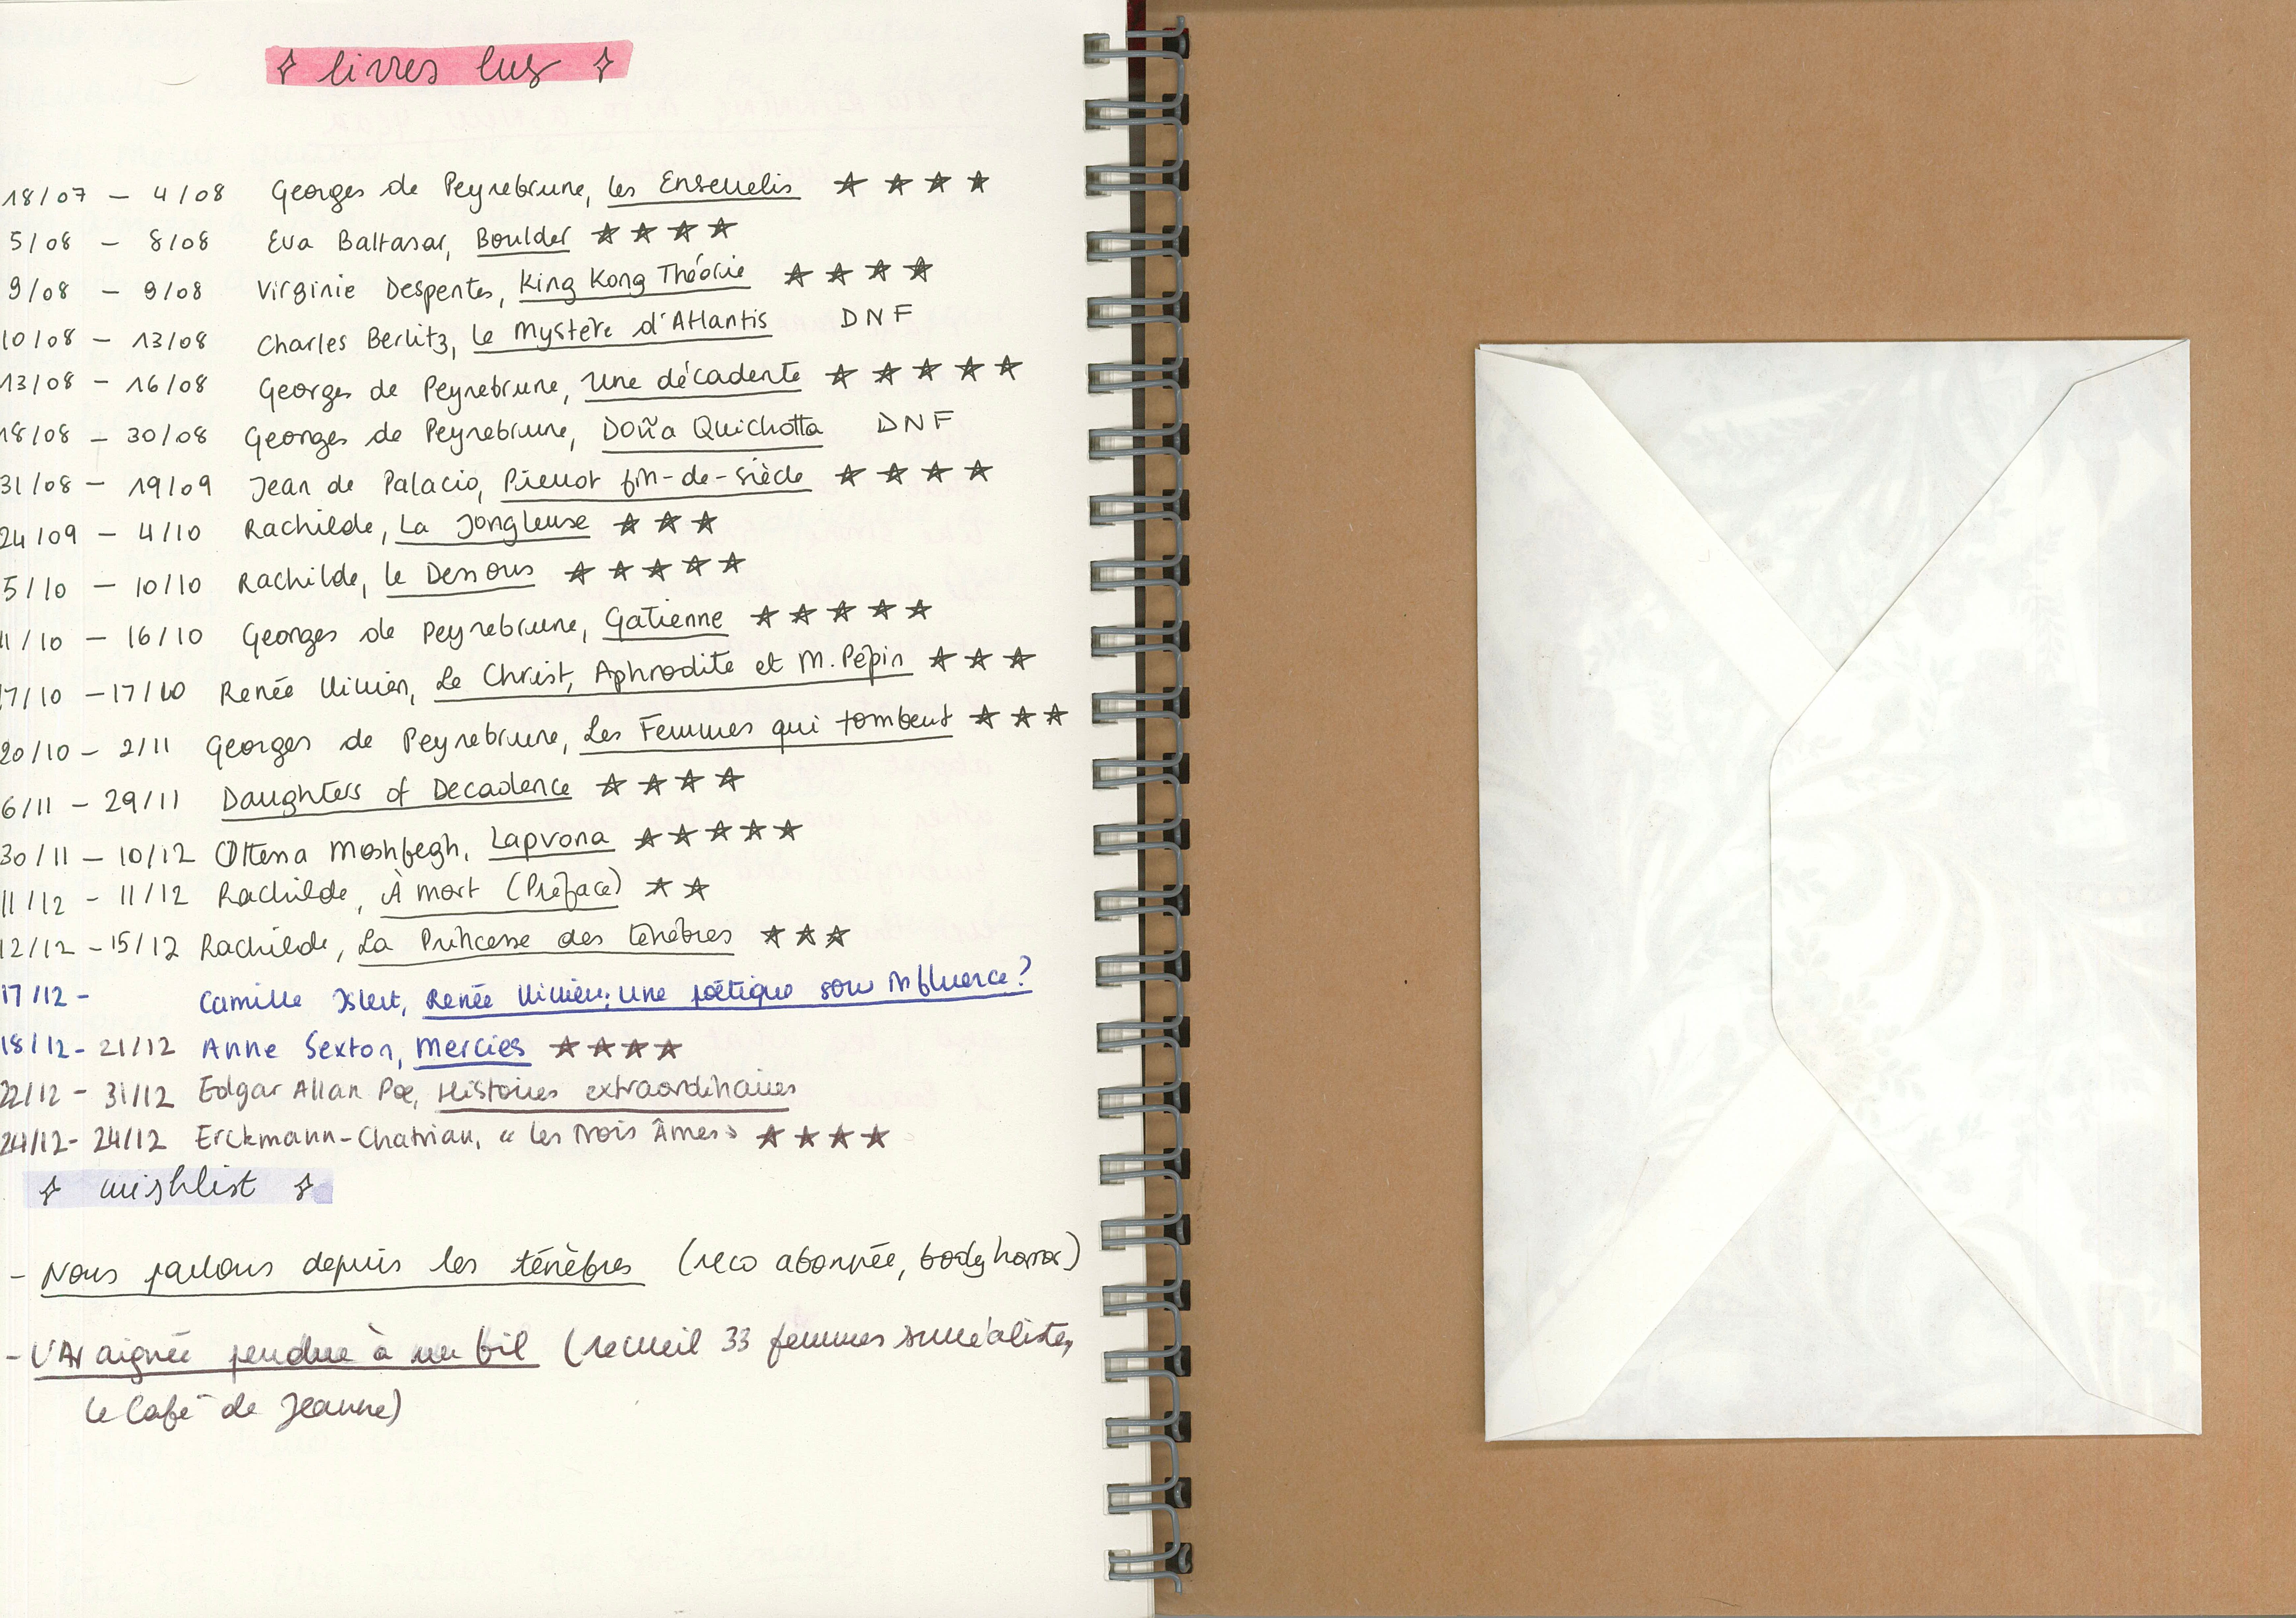 livres lus
18/07 - 4/08 Georges de Peyrebrune, Les Ensevelis ★ ★ ★ ★
5/08 - 8/08 Eva Baltasar, Boulder ★ ★ ★ ★
9/08 - 9/08 Virginie Despentes, King Kong Théorie ★ ★ ★ ★
10/08 - 13/08 Charles Berlitz, Le Mystère d'Atlantis DNF
13/08 - 16/08 Georges de Peyrebrune, Une décadente ★ ★ ★ ★ ★
18/08 - 30/08 Georges de Peyrebrune, Doña Quichotta DNF
31/08 - 19/09 Jean de Palacio, Pierrot fin-de-siècle ★ ★ ★ ★
24/09 - 4/10 Rachilde, La Jongleuse ★ ★ ★
5/10 - 10/10 Rachilde, Le Dessous ★ ★ ★ ★ ★
11/10 - 16/10 Georges de Peyrebrune, Gatienne ★ ★ ★ ★ ★
17/10 - 17/10 Renée Vivien, Le Christ, Aphrodite et M. Pépin ★ ★ ★
20/10 - 2/11 Georges de Peyrebrune, Les Femmes qui tombent ★ ★ ★
6/11 - 29/11 Daughters of Decadence ★ ★ ★ ★
30/11 - 10/12 Ottessa Moshfegh, Lapvona ★ ★ ★ ★ ★
11/12 - 11/12 Rachilde, À mort (Préface) ★ ★
12/12 - 15/12 Rachilde, La Princesse des ténèbres ★ ★ ★
17/12 - Camille Islert, Renée Vivien: une poétique sous influence ?
18/12 - 21/12 Anne Sexton, Mercies ★ ★ ★ ★
22/12 - 31/12 Edgar Allan Poe, Histoires extraordinaires
24/12 - 24/12 Erckmann-Chatrian, « Les Trois Âmes » ★ ★ ★ ★
wishlist
- Nous parlons depuis les ténèbres (reco abonnée, body horror)
- L'Araignée pendue à un fil (recueil 33 femmes surréalistes,
Le Café de Jeanne)